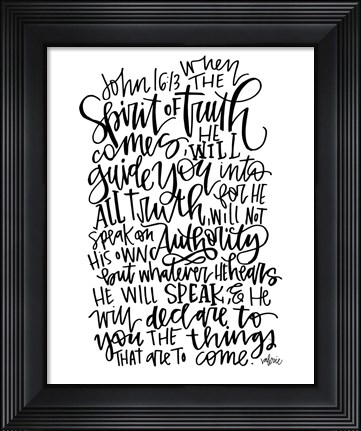 John 16:13 when
THE
Spirit OF truth
comes, HE
WILL
guide you into
ALL truth, for HE
will NOT
speak on
HIS OWN Authority
but whatever HE hears
HE WILL SPEAK & HE
will declare to
you THE things
THAT are TO come.
valerie